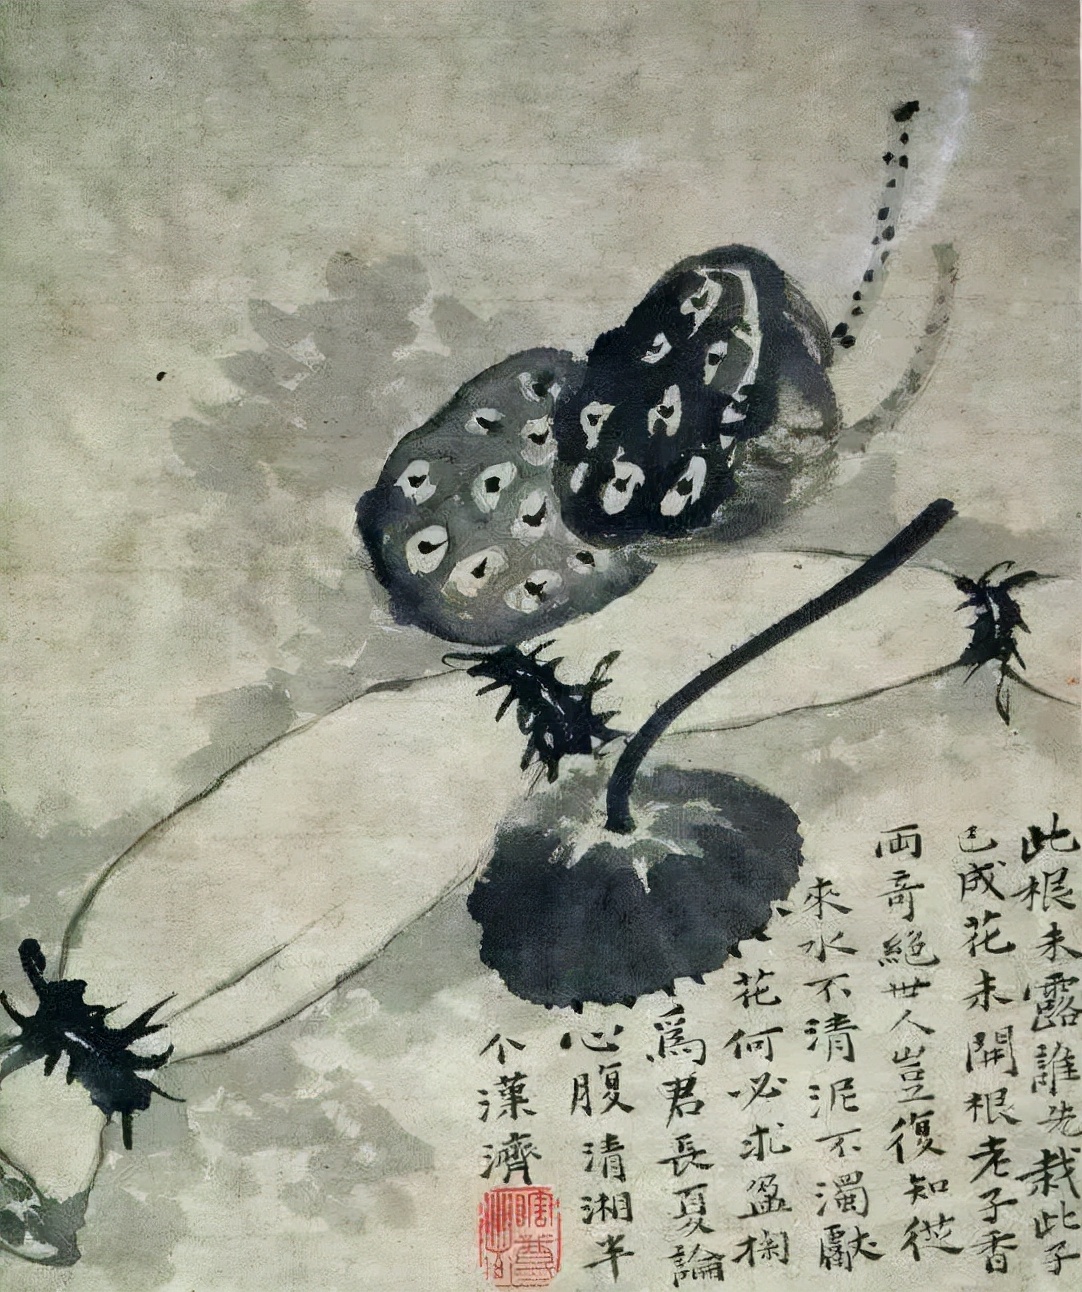 此根未露誰先栽此子
已成花未開根老子香
両奇絕世人豈復知從
來水不清泥不濁獻
花何必求盈掬
為君長夏論
心腹清湘半
个漢濟
瞎尊者